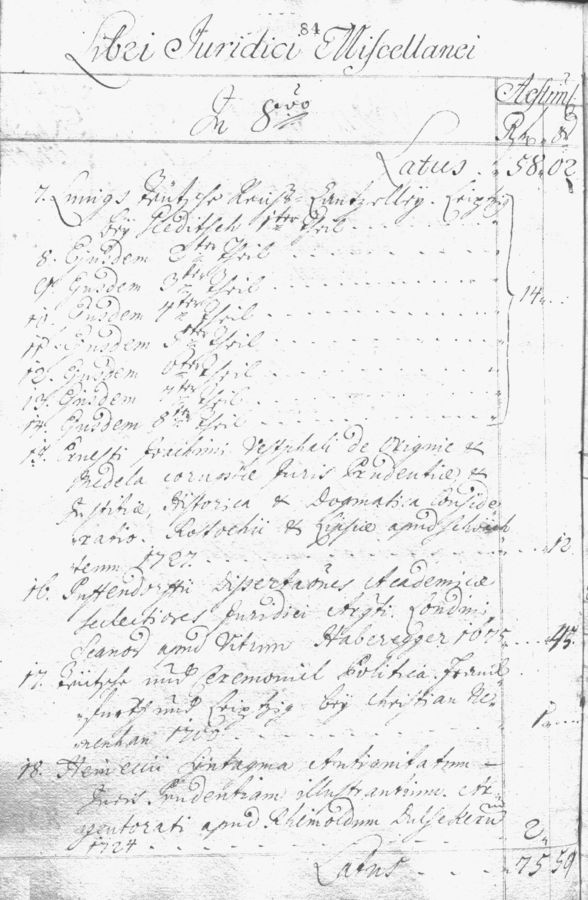 84
Libri Juridici Miscellanei
In 8vo
Aestim
Rh
Latus . 58. 02
7. Lunigs Teutsche Reichs= Cantzelley. Leipzig
bey Gleditsch 1ter Theil
8. Ejusdem 2ter Theil
9. Ejusdem 3ter Theil
10. Ejusdem 4ter Theil
11. Ejusdem 5ter Theil
12. Ejusdem 6ter Theil
13. Ejusdem 7ter Theil
14. Ejusdem 8ter Theil
14
15. Ernesti Joachimi Vestphali de Origine &
Medela corruptae Juris Prudentiae, &
Justitiae, Historica & Dogmatica Conside
ratio. Rostochii & Lipsiae apud
1727. 12
16. Puffendorffii Dissertationes Academicae
selectiores Juridici Londini
Scanor apud Vitum Haberegger 1675 45
17. Teutsche und Ceremoniel Politica. Franck
furth und Leipzig bey Christian
1700 1
18. Heinecii Syntagma Antiquitatum
Juris Prudentiam illustrantium. Ar
gentorati apud Rhinoldum Dulseckerum
1724 2
Latus 75 59